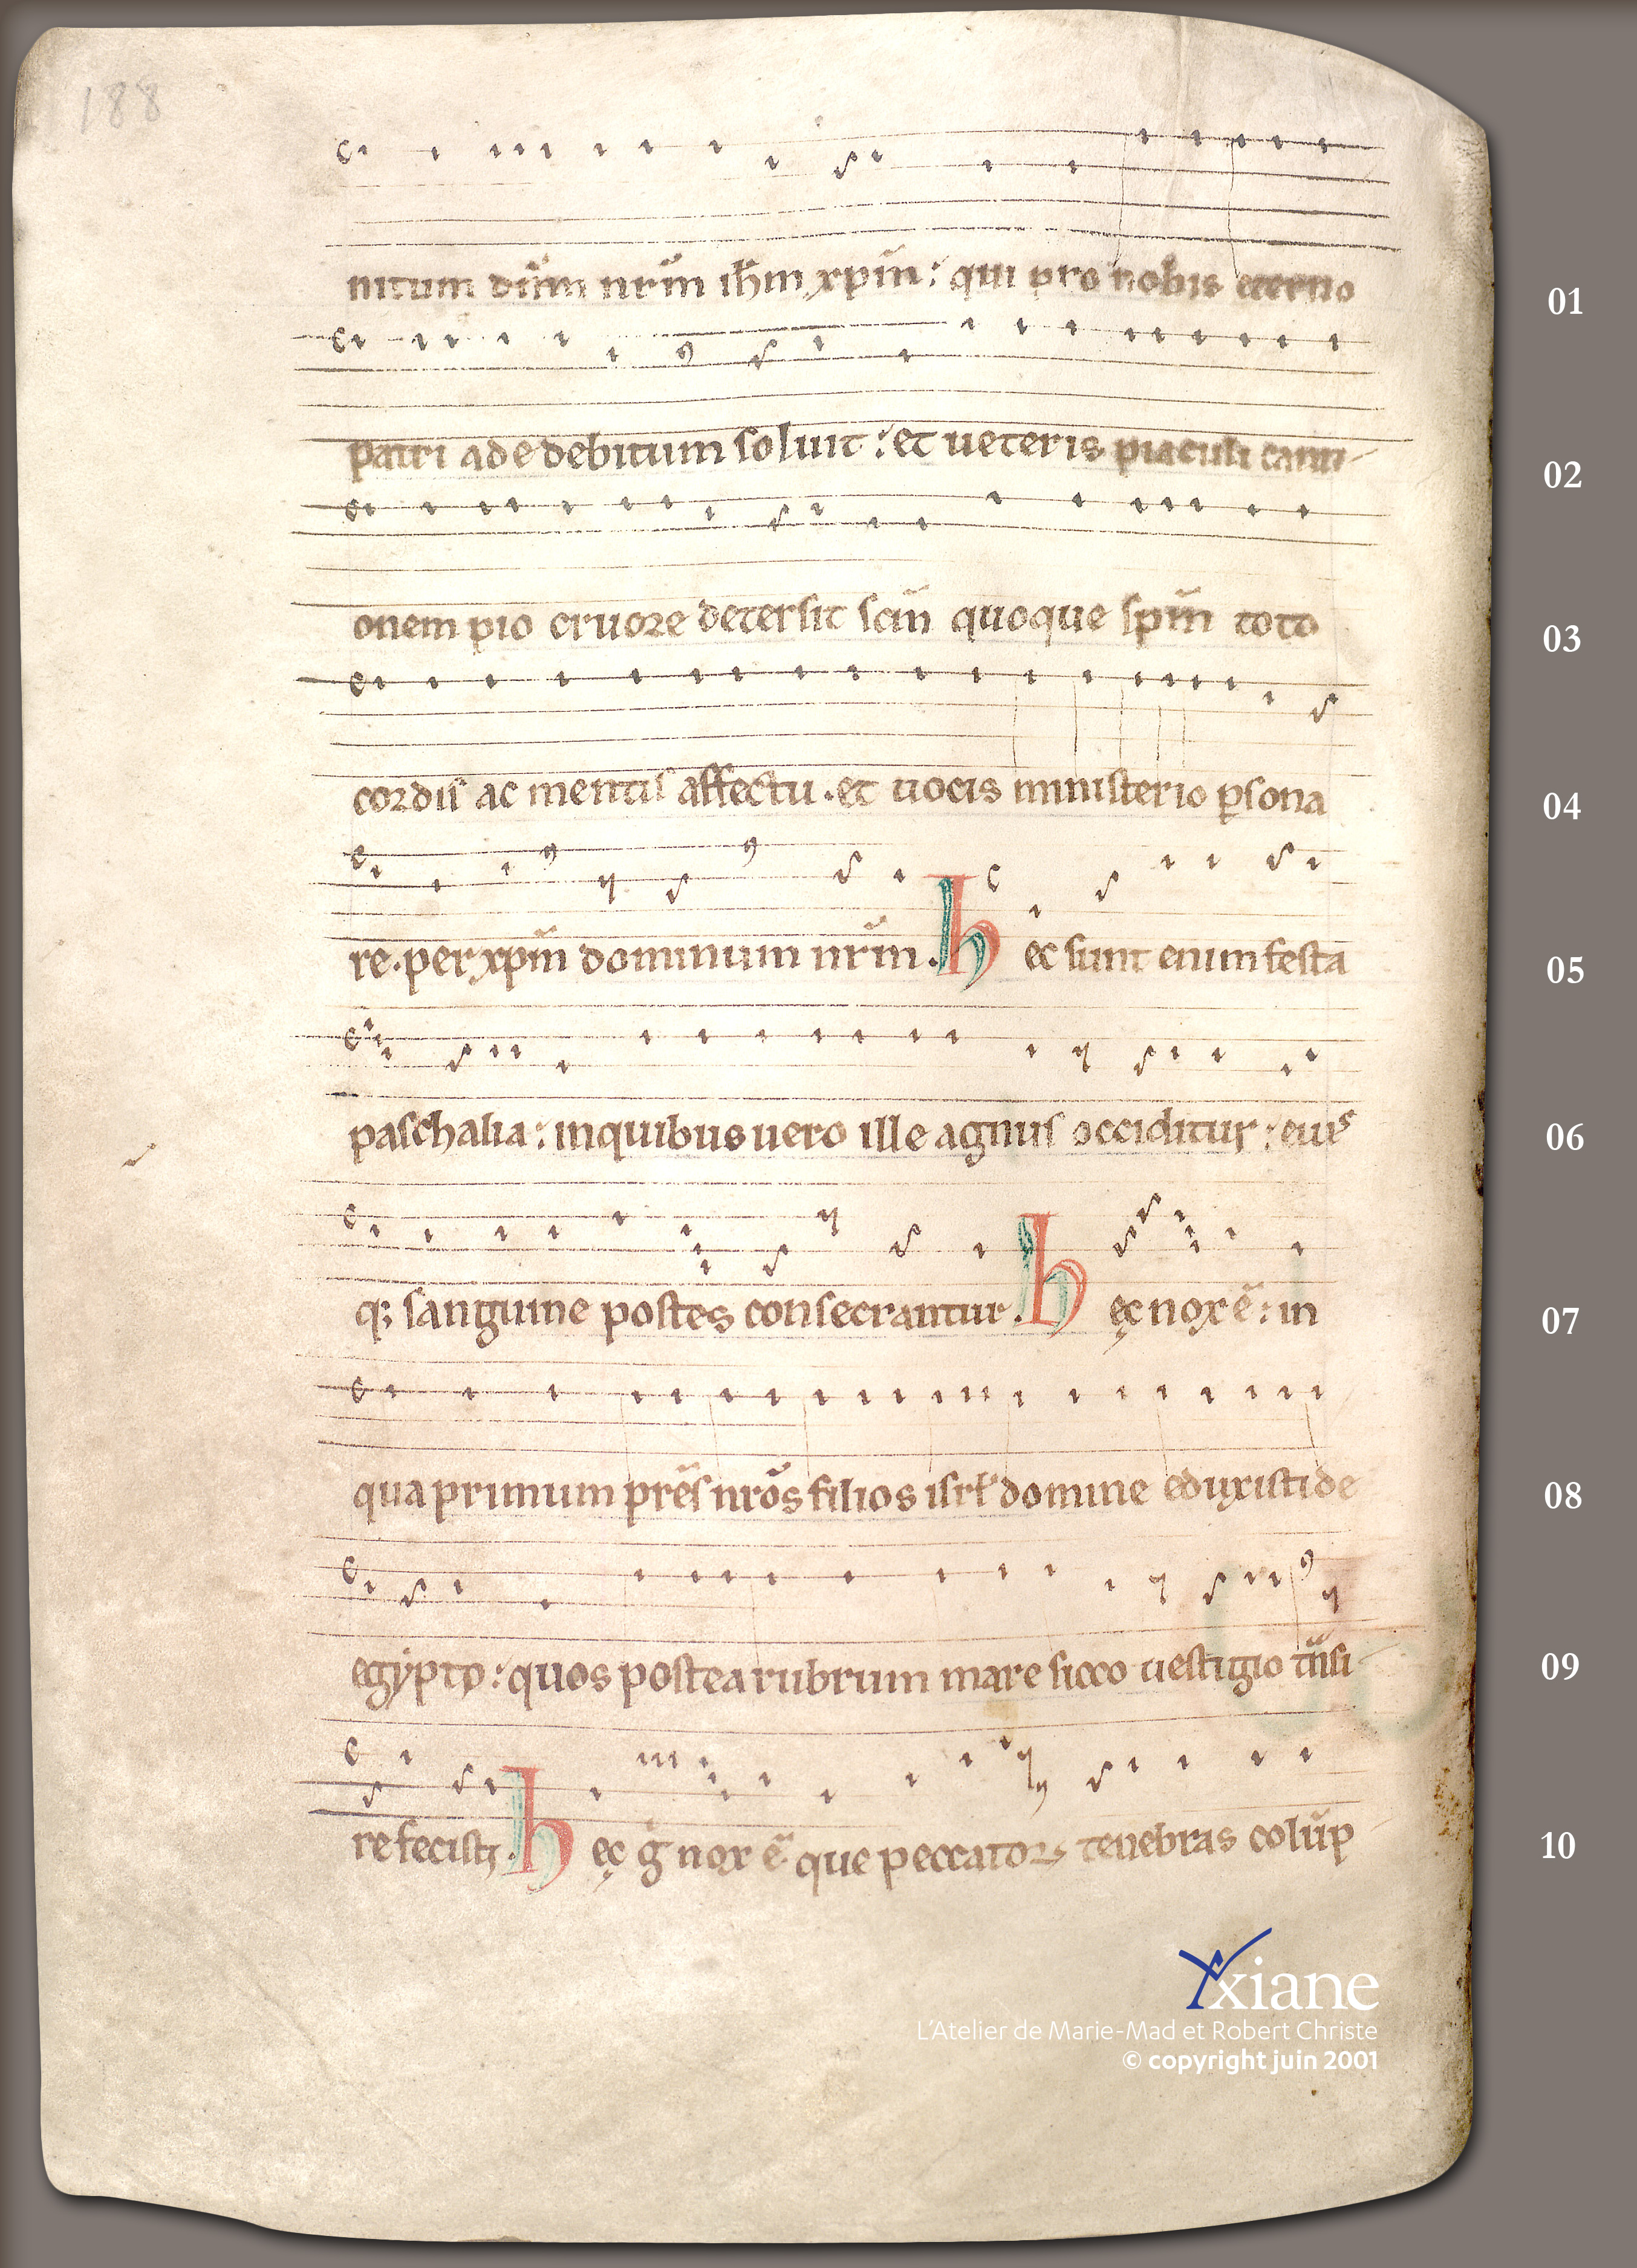 188
nitum dn̄m nr̄m ih̄m xpm̄: qui pro nobis eterno
01
patri ade debitum soluit: et ueteris piaculi cauti-
02
onem pio cruore detersit scm̄ quoque spm̄ toto
03
cordis ac mentis affectu. et uocis ministerio ꝑsona
04
re. per xpm̄ dominum nr̄m. hec sunt enim festa
05
paschalia: in quibus uero ille agnus occiditur: eiuꝰ
06
qꝫ sanguine postes consecrantur. hęc nox ē: in
07
qua primum prēs nrōs filios isrł domine eduxisti de
08
egypto: quos postea rubrum mare sicco uestigio tn̄si
09
re fecistꝫ. hęc g̊ nox ē que peccatoꝝ tenebras colūp
10
Xxiane
L'Atelier de Marie-Mad et Robert Christe
© copyright juin 2001